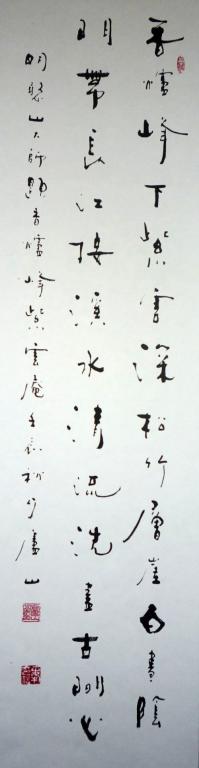 香爐峰下紫雲深松竹層崖白晝陰
門帶長江接溪水清流洗盡古心
明憨山大師題香爐峰紫雲庵壬辰秋廬山